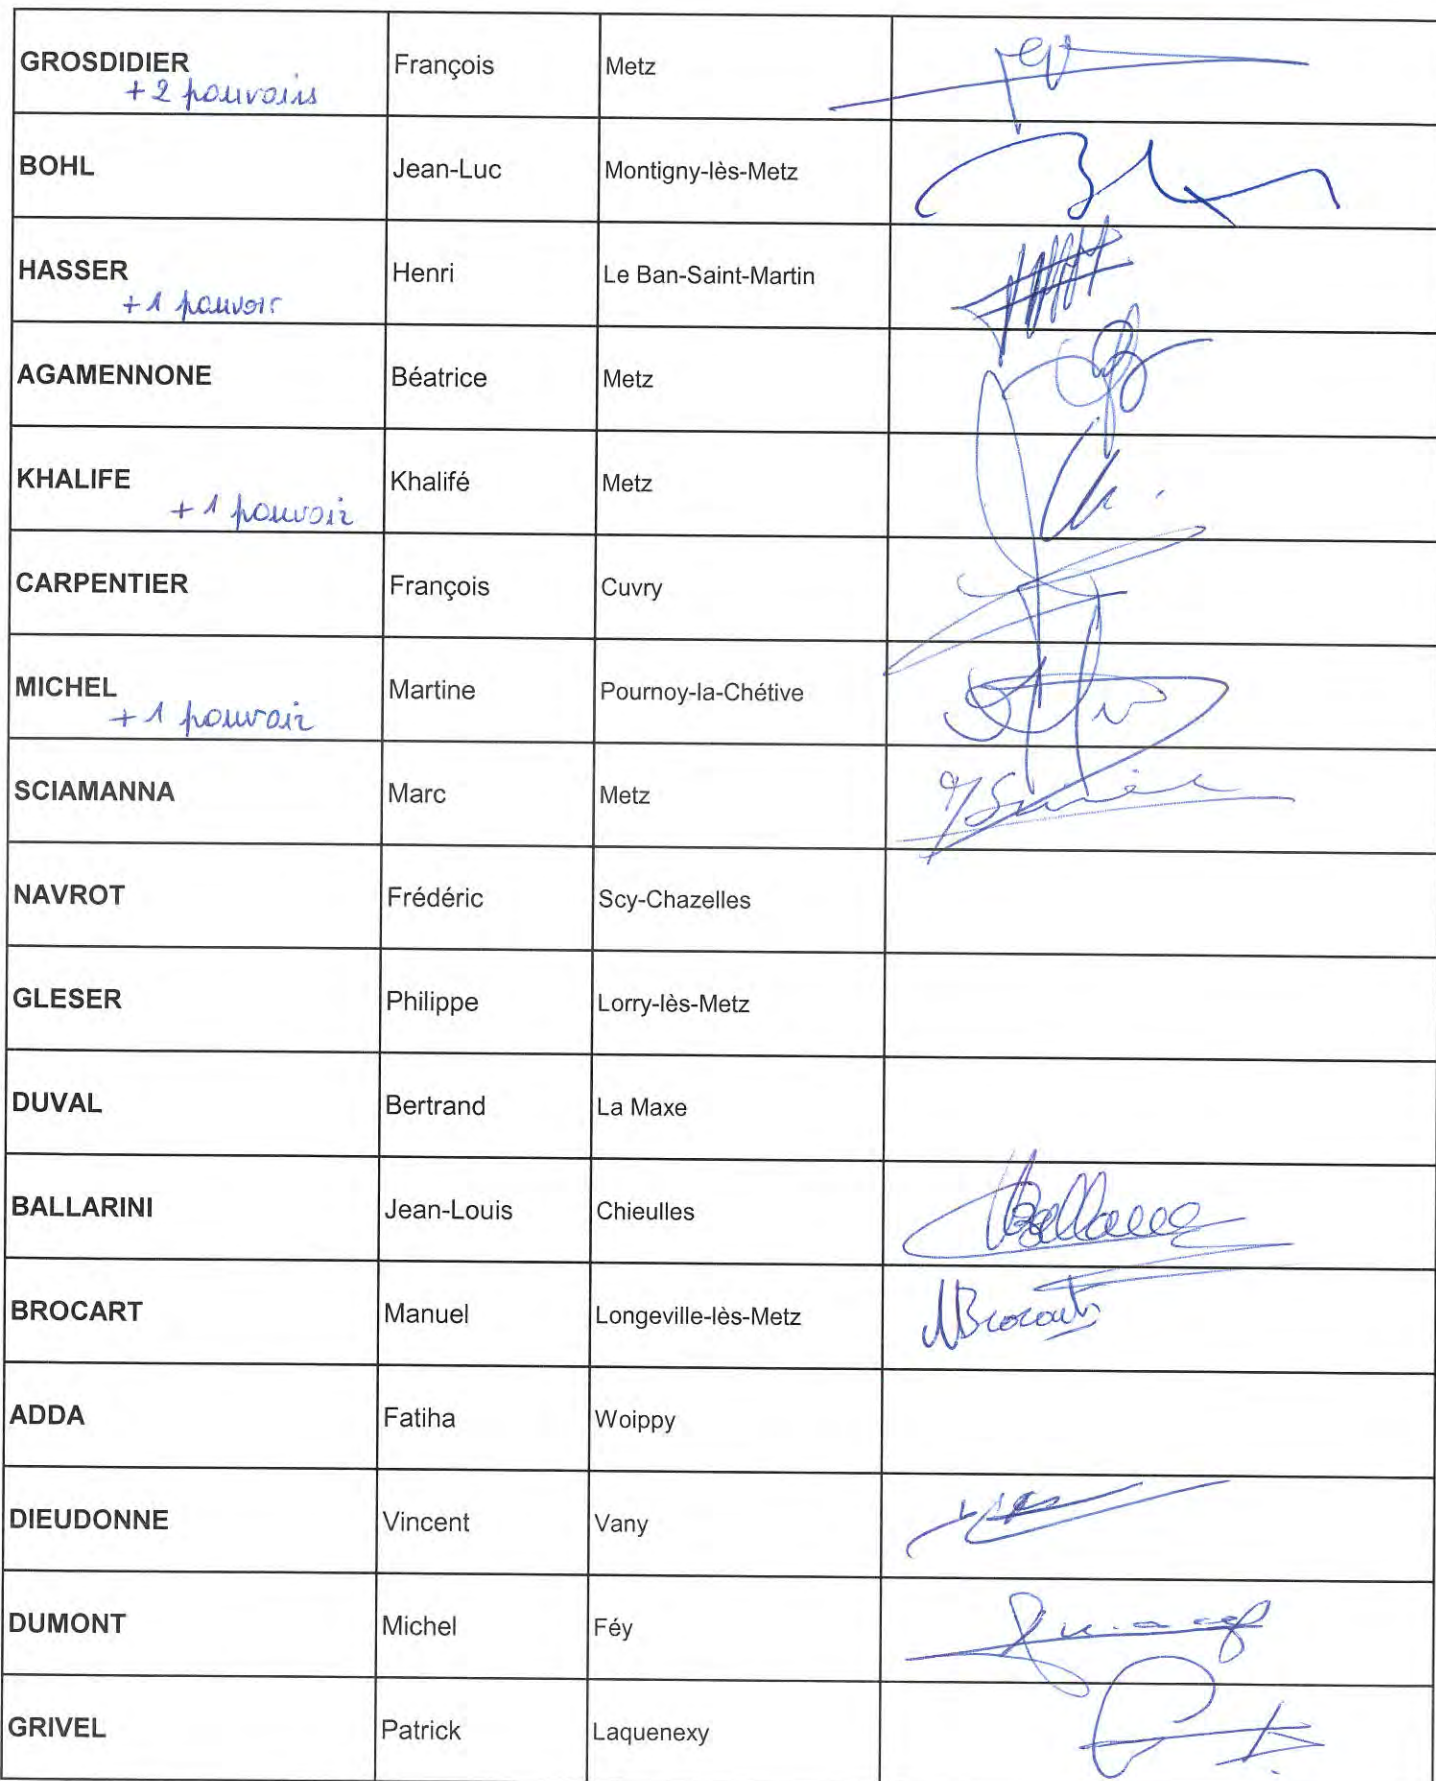 GROSDIDIER François Metz
+2 pouvoirs
BOHL Jean-Luc Montigny-lès-Metz
HASSER Henri Le Ban-Saint-Martin
+1 pouvoir
AGAMENNONE Béatrice Metz
KHALIFE Khalifé Metz
+1 pouvoir
CARPENTIER François Cuvry
MICHEL Martine Pournoy-la-Chétive
+1 pouvoir
SCIAMANNA Marc Metz
NAVROT Frédéric Scy-Chazelles
GLESER Philippe Lorry-lès-Metz
DUVAL Bertrand La Maxe
BALLARINI Jean-Louis Chieulles
BROCART Manuel Longeville-lès-Metz
ADDA Fatiha Woippy
DIEUDONNE Vincent Vany
DUMONT Michel Féy
GRIVEL Patrick Laquenexy